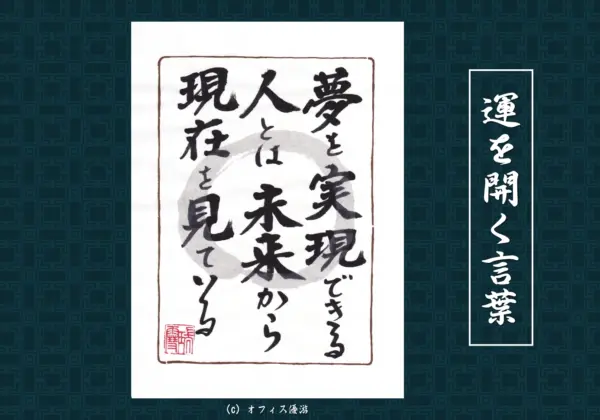 夢を実現できる
人とは未来から
現在を見ている
運を開く言葉
(C) オフィス優游